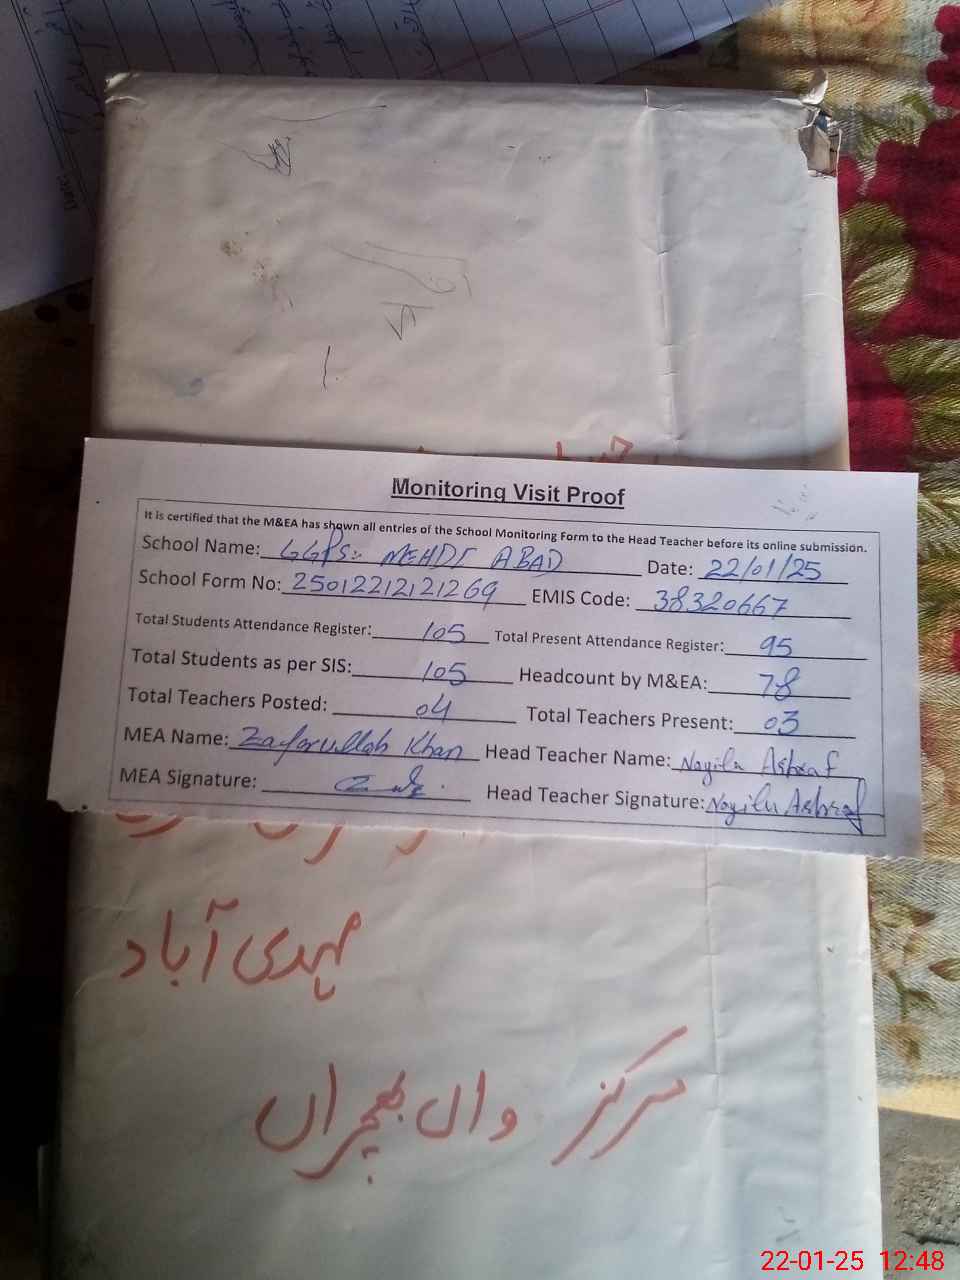 Monitoring Visit Proof
It is certified that the M&EA has shown all entries of the School Monitoring Form to the Head Teacher before its online submission.
School Name: GGPS:. MEHDI ABAD Date: 22/01/25
School Form No: 25012212121269 EMIS Code: 38320667
Total Students Attendance Register: 105 Total Present Attendance Register: 95
Total Students as per SIS: 105 Headcount by M&EA: 78
Total Teachers Posted: 04 Total Teachers Present: 03
MEA Name: Zafarullah Khan Head Teacher Name: Nayila Ashraf
MEA Signature: Head Teacher Signature: Nayila Ashraf
مہدی آباد
مرکز واں بھچراں
22-01-25 12:48